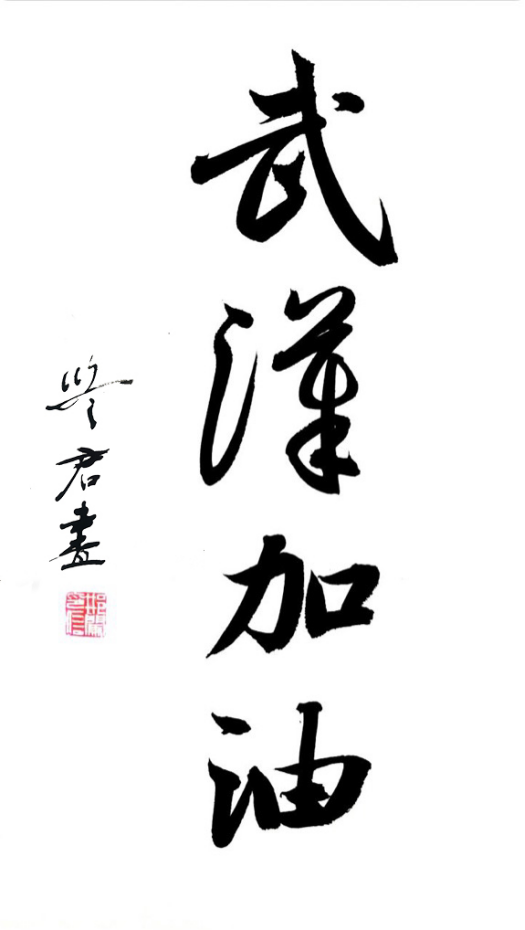 武漢加油
君畫